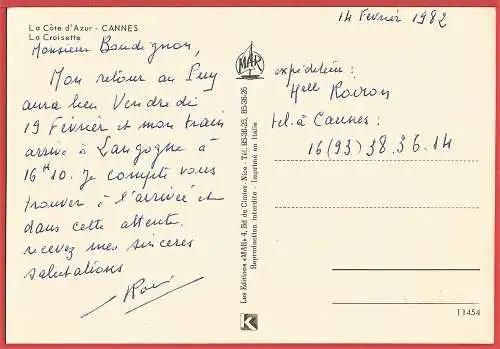 La Côte d'Azur - CANNES
La Croisette
14 Février 1982
Monsieur Boudignon,
Mon retour au Puy
aura lieu Vendredi
19 Février et mon train
arrive à Langogne à
16H10. Je compte vous
trouver à l'arrivée et
dans cette attente.
recevez mes sincères
salutations
MAR
Les Editions «MAR» 4, Bd de Cimiez - Nice - Tél. 85-36-25, 85-36-26
Reproduction interdite - Imprimé en Italie
K
expéditeur:
Mell Roiron
tel. à Cannes:
16(93)38.36.14
11454